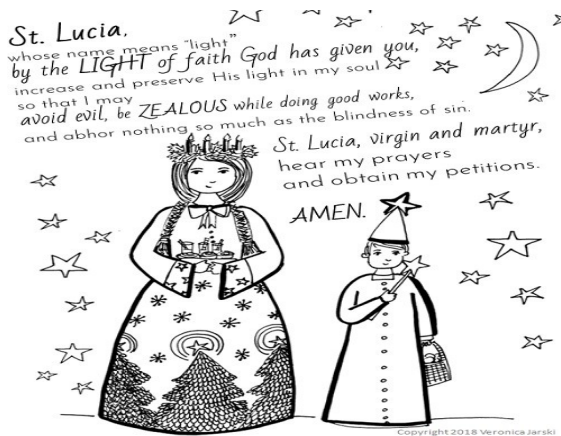 St. Lucia,
whose name means "light"
by the LIGHT of faith God has given you,
increase and preserve His light in my soul
so that I may
avoid evil, be ZEALOUS while doing good works,
and abhor nothing so much as the blindness of sin.
St. Lucia, virgin and martyr,
hear my prayers
and obtain my petitions.
AMEN.
Copyright 2018 Veronica Jarski